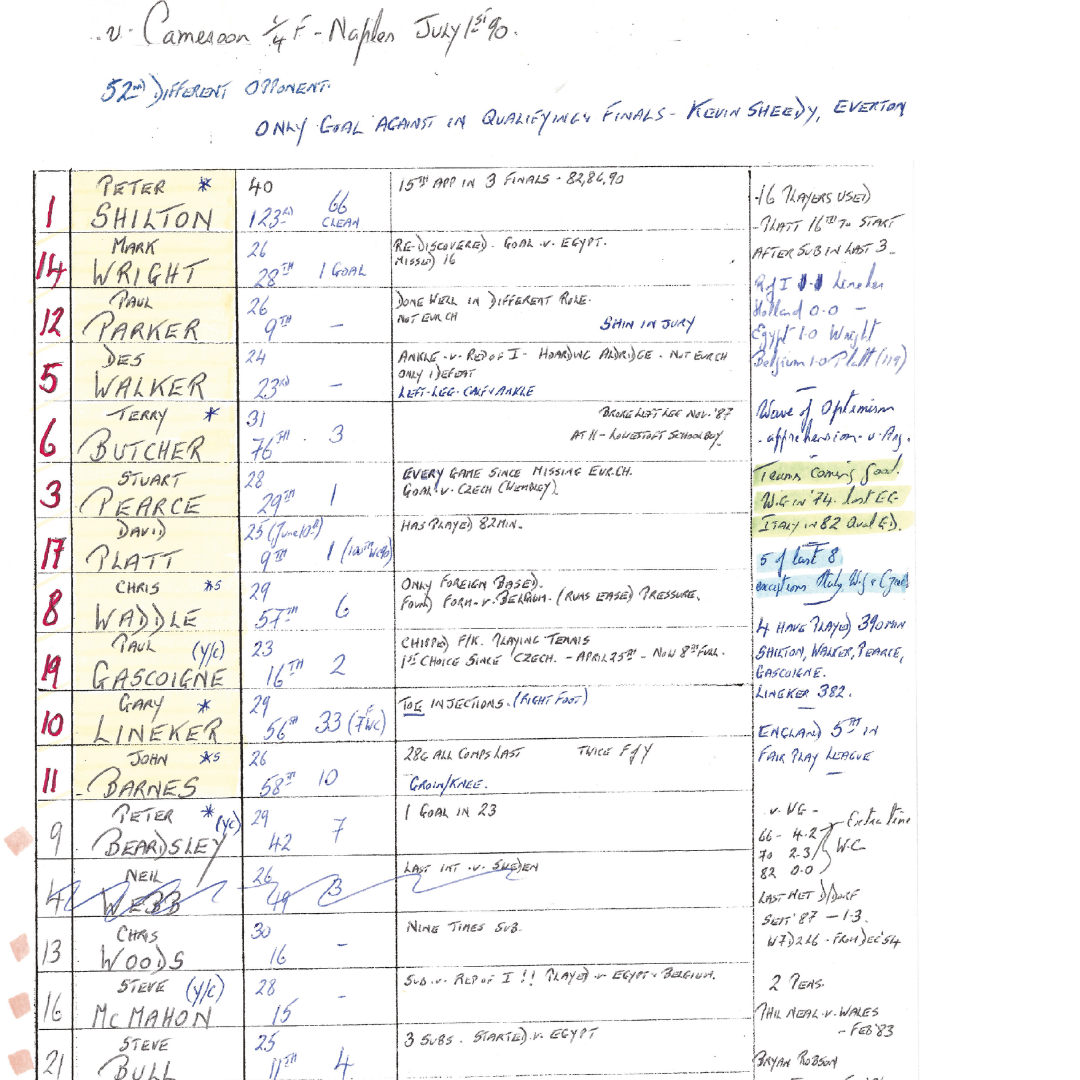 v. Cameroon 1/4 F - Naples July 1st 90.
52nd DIFFERENT OPPONENT.
ONLY GOAL AGAINST IN QUALIFYING & FINALS - KEVIN SHEEDY, EVERTON
1 PETER * SHILTON
40
123RD 66 CLEAN
15TH APP IN 3 FINALS - 82,86,90
14 MARK WRIGHT
26
28TH 1 GOAL
RE-DISCOVERED. GOAL .v. EGYPT.
MISSED 16
12 PAUL PARKER
26
9TH -
DONE WELL IN DIFFERENT ROLE.
NOT EUR CH
SHIN INJURY
5 DES WALKER
24
23RD -
ANKLE .v. REP OF I - HOARDING ALDRIDGE - NOT EUR CH
ONLY 1 DEFEAT
LEFT-LEG-CALF & ANKLE
6 TERRY * BUTCHER
31
76TH . 3
BROKE LEFT LEG NOV. '87
AT H - LOWESTOFT SCHOOLBOY
3 STUART PEARCE
28
29TH 1
EVERY GAME SINCE MISSING EUR.CH.
GOAL .v. CZECH (WEMBLEY).
17 DAVID PLATT
25 (June 10th)
9TH 1
HAS PLAYED 82MIN.
8 CHRIS *s WADDLE
29
57TH 6
ONLY FOREIGN BASED.
FOUND FORM .v. BELGIUM. (RUNS EASED) PRESSURE.
19 PAUL (Y/C) GASCOIGNE
23
16TH 2
CHIPPED F/K. PLAYING TENNIS
1ST CHOICE SINCE CZECH. - APRIL 25TH - NOW 8TH FULL.
10 GARY * LINEKER
29
56TH 33 (7 F WC)
TOE INJECTIONS. (RIGHT FOOT)
11 JOHN *s BARNES
26
58TH 10
28G ALL COMPS LAST TWICE F of Y
GROIN/KNEE.
9 PETER * (YC) BEARDSLEY
29
42 7
1 GOAL IN 23
4 NEIL WEBB
26
49 3
LAST INT .v. SWEDEN
13 CHRIS WOODS
30
16 -
NINE TIMES SUB.
16 STEVE (Y/C) MCMAHON
28
15 -
SUB .v. REP OF I !! PLAYED v EGYPT & BELGIUM.
21 STEVE BULL
25
11TH 4
3 SUBS. STARTED .v. EGYPT
-16 PLAYERS USED
-PLATT 16TH TO START
AFTER SUB IN LAST 3.
R of I 1-1 Lineker
Holland 0-0 -
Egypt 1-0 Wright
Belgium 1-0 Platt (119)
Wave of Optimism
- apprehension - v. Arg.
Teams coming good.
W.G in '74. lost EG
ITALY IN 82
5 of last 8
exceptions Italy, W.G &
4 HAVE PLAYED 390 MIN
SHILTON, WALKER, PEARCE,
GASCOIGNE.
LINEKER 382.
ENGLAND 5TH IN
FAIR PLAY LEAGUE
.v. WG -
66 - 4.2 Extra time
70 2.3 W.C
82 0.0
LAST MET D/DORF
SEPT '87 - 1-3.
W7D2L6 - FROM DEC '54
2 PENS.
PHIL NEAL .v. WALES
- FEB '83
BRYAN ROBSON